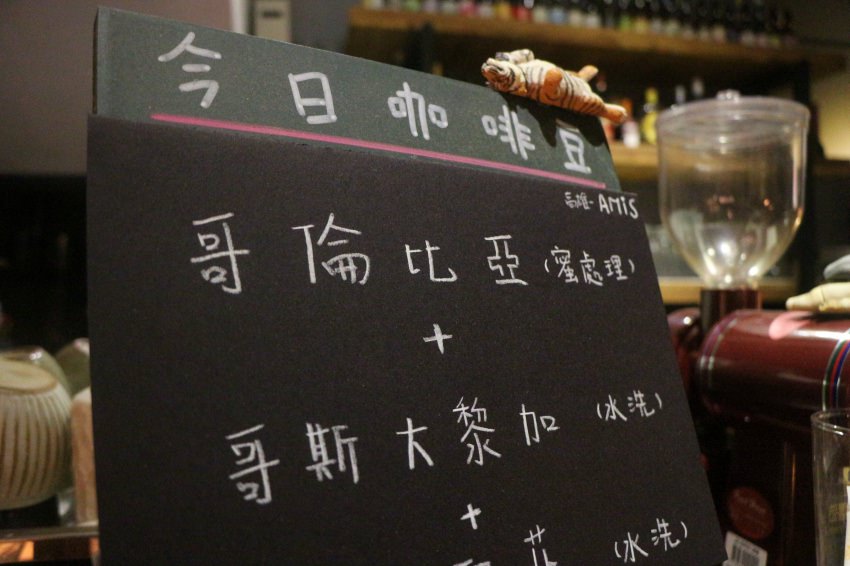 今日咖啡豆
高雄-AMiS
哥倫比亞(蜜處理)
+
哥斯大黎加(水洗)
+
花(水洗)